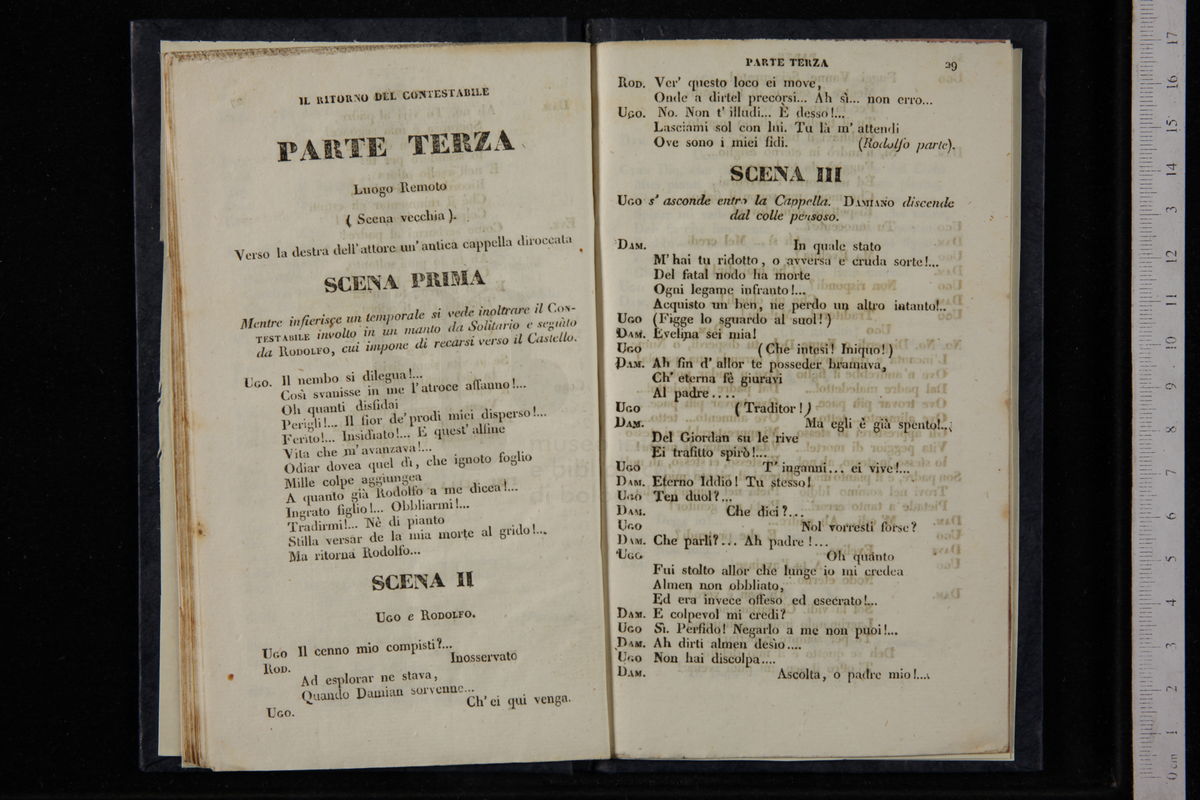 IL RITORNO DEL CONTESTABILE
PARTE TERZA
Luogo Remoto
( Scena vecchia ).
Verso la destra dell'attore un'antica cappella diroccata
SCENA PRIMA
Mentre infierisce un temporale si vede inoltrare il CON-
TESTABILE involto in un manto da Solitario e seguito
da RODOLFO, cui impone di recarsi verso il Castello.
UGO. Il nembo si dilegua!...
Così svanisse in me l'atroce affanno!...
Oh quanti disfidai
Perigli!... Il fior de' prodi miei disperso!...
Ferito!... Insidiato!... E quest' alfine
Vita che m'avanzava!...
Odiar dovea quel dì, che ignoto foglio
Mille colpe aggiungea
A quanto già Rodolfo a me dicea!...
Ingrato figlio!... Obbliarmi!...
Tradirmi!... Nè di pianto
Stilla versar de la mia morte al grido!...
Ma ritorna Rodolfo...
SCENA II
UGO e RODOLFO.
UGO Il cenno mio compisti?...
ROD. Inosservato
Ad esplorar ne stava,
Quando Damian sorvenne...
UGO. Ch' ei qui venga.
PARTE TERZA 29
ROD. Ver' questo loco ei move,
Onde a dirtel precorsi... Ah sì... non erro...
UGO. No. Non t' illudi... È desso!...
Lasciami sol con lui. Tu là m' attendi
Ove sono i miei fidi. (Rodolfo parte).
SCENA III
UGO s' asconde entro la Cappella. DAMIANO discende
dal colle pensoso.
DAM. In quale stato
M' hai tu ridotto, o avversa e cruda sorte!...
Del fatal nodo ha morte
Ogni legame infranto!...
Acquisto un ben, ne perdo un altro intanto!..
UGO (Figge lo sguardo al suol!)
DAM. Evelina sei mia!
UGO (Che intesi! Iniquo!)
DAM. Ah fin d' allor te posseder bramava,
Ch' eterna fè giuravi
Al padre....
UGO (Traditor!)
DAM. Ma egli è già spento!...
Del Giordan su le rive
Ei trafitto spirò!...
UGO T' inganni... ei vive!...
DAM. Eterno Iddio! Tu stesso!
UGO Ten duol?...
DAM. Che dici?...
UGO Nol vorresti forse?
DAM. Che parli?... Ah padre!...
UGO Oh quanto
Fui stolto allor che lunge io mi credea
Almen non obbliato,
Ed era invece offeso ed esecrato!...
DAM. E colpevol mi credi?
UGO Sì. Perfido! Negarlo a me non puoi!...
DAM. Ah dirti almen desio....
UGO Non hai discolpa....
DAM. Ascolta, o padre mio!...